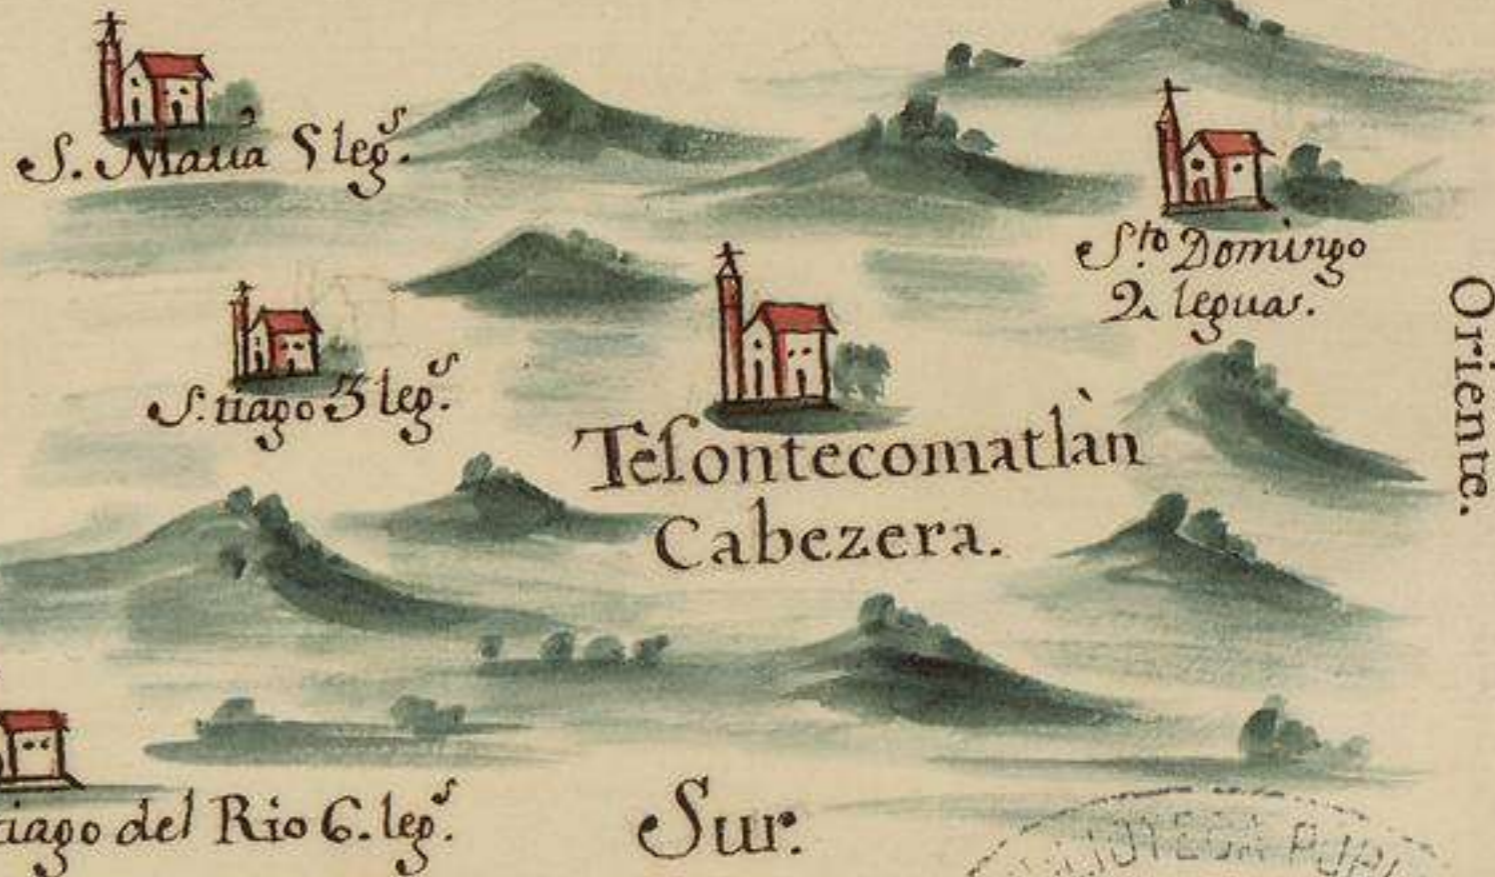 S. Maria 5 leg.s
S.to Domingo
2 leguas.
S. tiago 3 leg.s
Tesontecomatlàn
Cabezera.
Oriente.
tiago del Rio 6. leg.s
Sur.
BIBLIOTECA PUBL